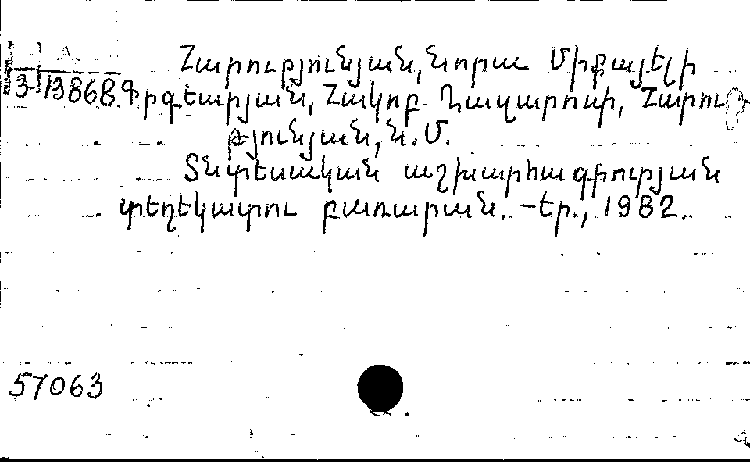 Հարությունյան, Նորա Միքայելի
А
3 13868 Փիրզեարյան, Հակոբ Ղազարոսի, Հարու
թյունյան, Ն. Մ.
Տնտեսական աշխարհագրության
տեղեկատու բառարան. – Եր., 1982.
57063